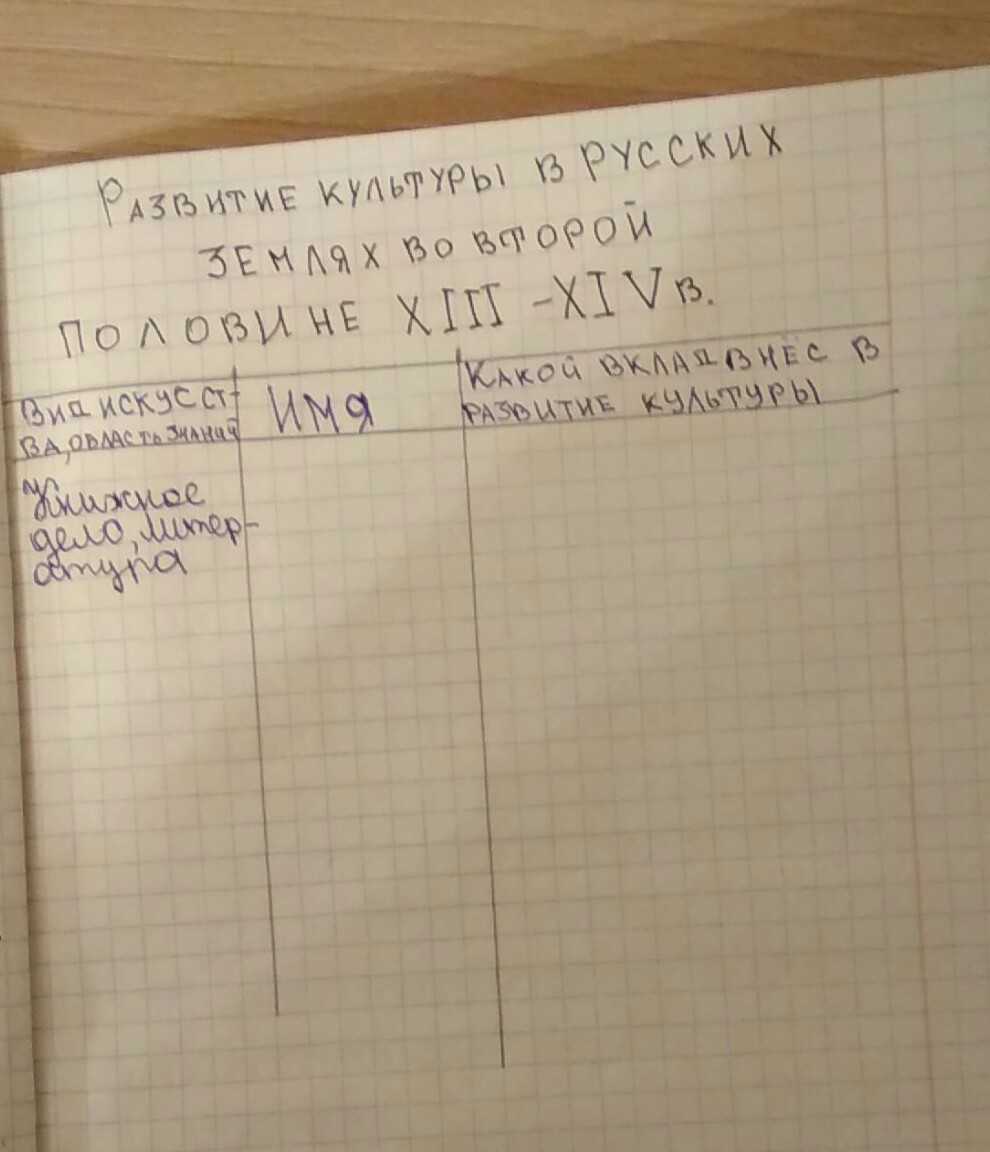 Развитие культуры в русских
землях во второй
половине XIII - XIV в.
Вид искусст-
ва, область знаний
Имя
Какой вклад внёс в
развитие культуры
Книжное
дело, литер-
атура